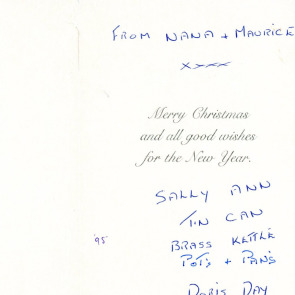 FROM NANA + MAURICE
xxxx
Merry Christmas
and all good wishes
for the New Year.
SALLY ANN
TIN CAN
'95
BRASS KETTLE
POTS + PANS
DORIS DAY